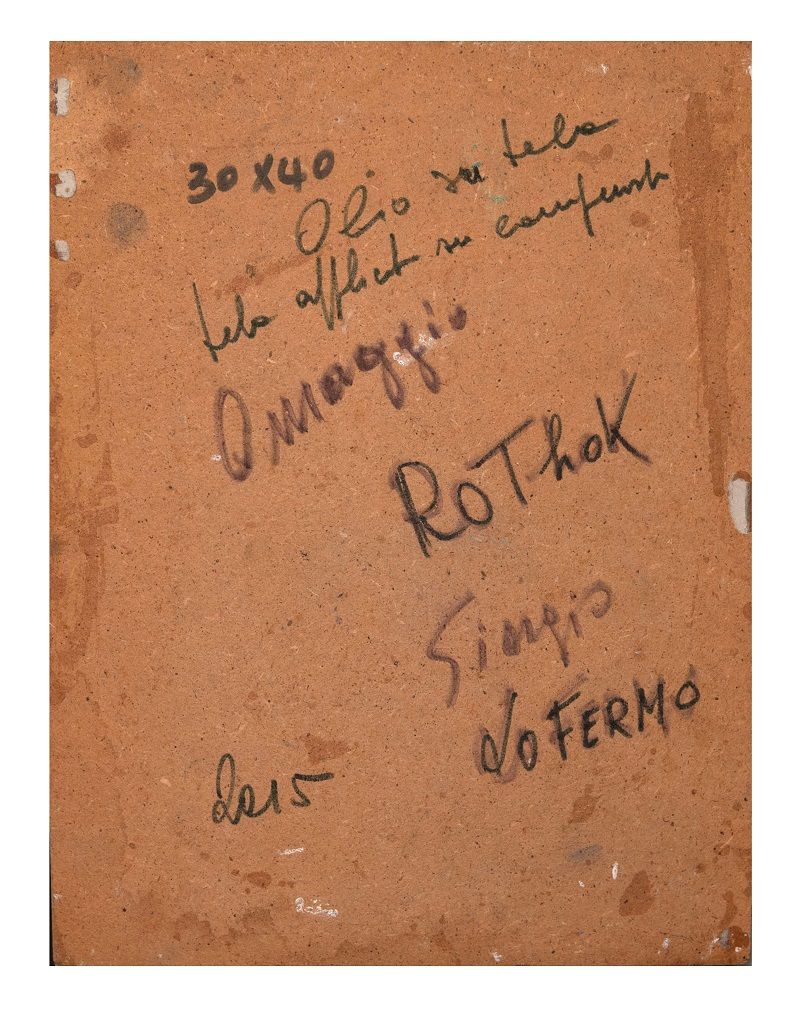 30 x 40
Olio su tela
tela applicata su compensato
Omaggio
RoThoK
Giorgio
LoFERMO
2015